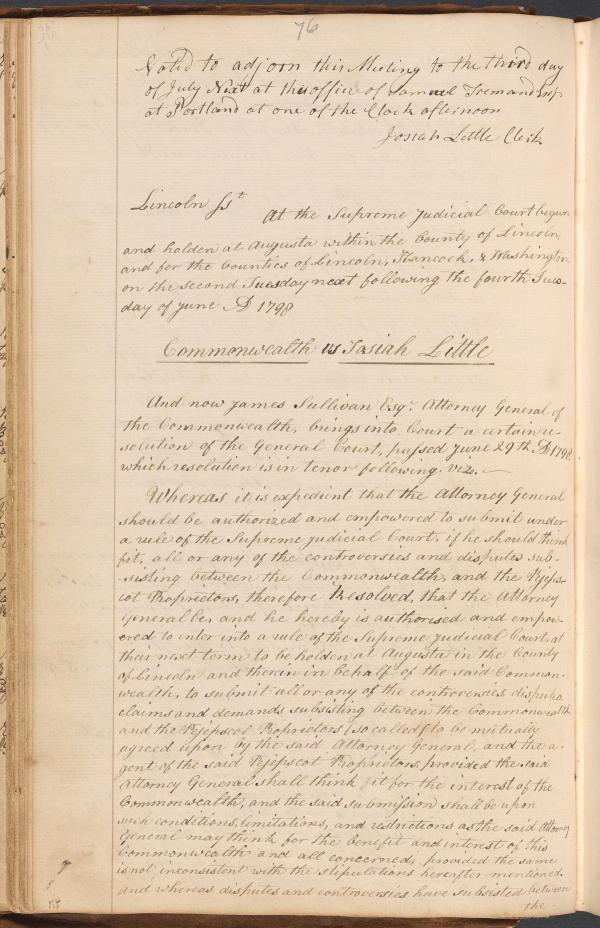 76
Voted to adjorn this Meeting to the third day
of July Next at the office of Samuel Freeman Esqr
at Portland at one of the Clock afternoon
Josiah Little Clerk
Lincoln Sst
At the Supreme Judicial Court begun
and holden at Augusta within the County of Lincoln,
and for the Counties of Lincoln, Hancock, & Washington
on the second Tuesday next following the fourth Tues-
day of June AD 1798
Commonwealth vs Josiah Little
And now James Sullivan Esqr. Attorney General of
the Commonwealth, brings into Court a certain re-
solution of the General Court, passed June 29th AD 1798,
which resolution is in tenor following. viz.
Whereas it is expedient that the Attorney General
should be authorized and empowered to submit under
a rule of the Supreme Judicial Court, if he should think
fit, all or any of the controversies and disputes sub-
-sisting between the Commonwealth, and the Pejeps-
cot Proprietors, therefore Resolved, that the Attorney
General be, and he hereby is authorised and empow-
ered to enter into a rule of the Supreme Judicial Court, at
their next term to be holden at Augusta in the County
of Lincoln and therein in behalf of the said Common-
wealth, to submit all or any of the controversies disputes
claims and demands subsisting between the Commonwealth
and the Pejepscot Proprietors (so called) to be mutually
agreed upon by the said Attorney General, and the a-
gent of the said Pejepscot Proprietors, provided the said
Attorney General shall think fit for the interest of the
Commonwealth, and the said submission shall be upon
such conditions, limitations, and restrictions as the said Attorney
General may think for the benefit and interest of this
Commonwealth and all concerned, provided the same
is not inconsistent with the stipulations hereafter mentioned.
And whereas disputes and controversies have subsisted between
the